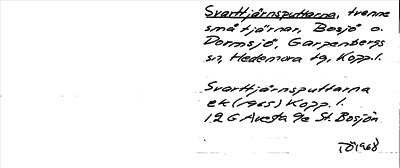 Svarttjärnsputtarna, tvenne
små tjärnar, Bosjö o.
Dormsjö, Garpenbergs
sn, Hedemora tg, Kopp.l.
Svarttjärnsputtarna
ek (1965) Kopp. l.
12 G Avesta 9e St. Bosjön
TÖ 1968